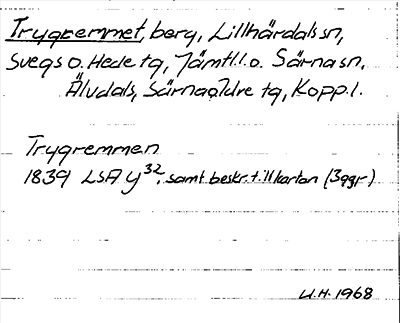 Trygremmet, berg, Lillhärdals sn,
Svegs o. Hede tg, Jämtl.l. o. Särna sn,
Älvdals, Särna o Idre tg, Kopp.l.
Trygremmen
1839 LSA Y 32, samt beskr. till kartan (3 ggr)
U.H. 1968